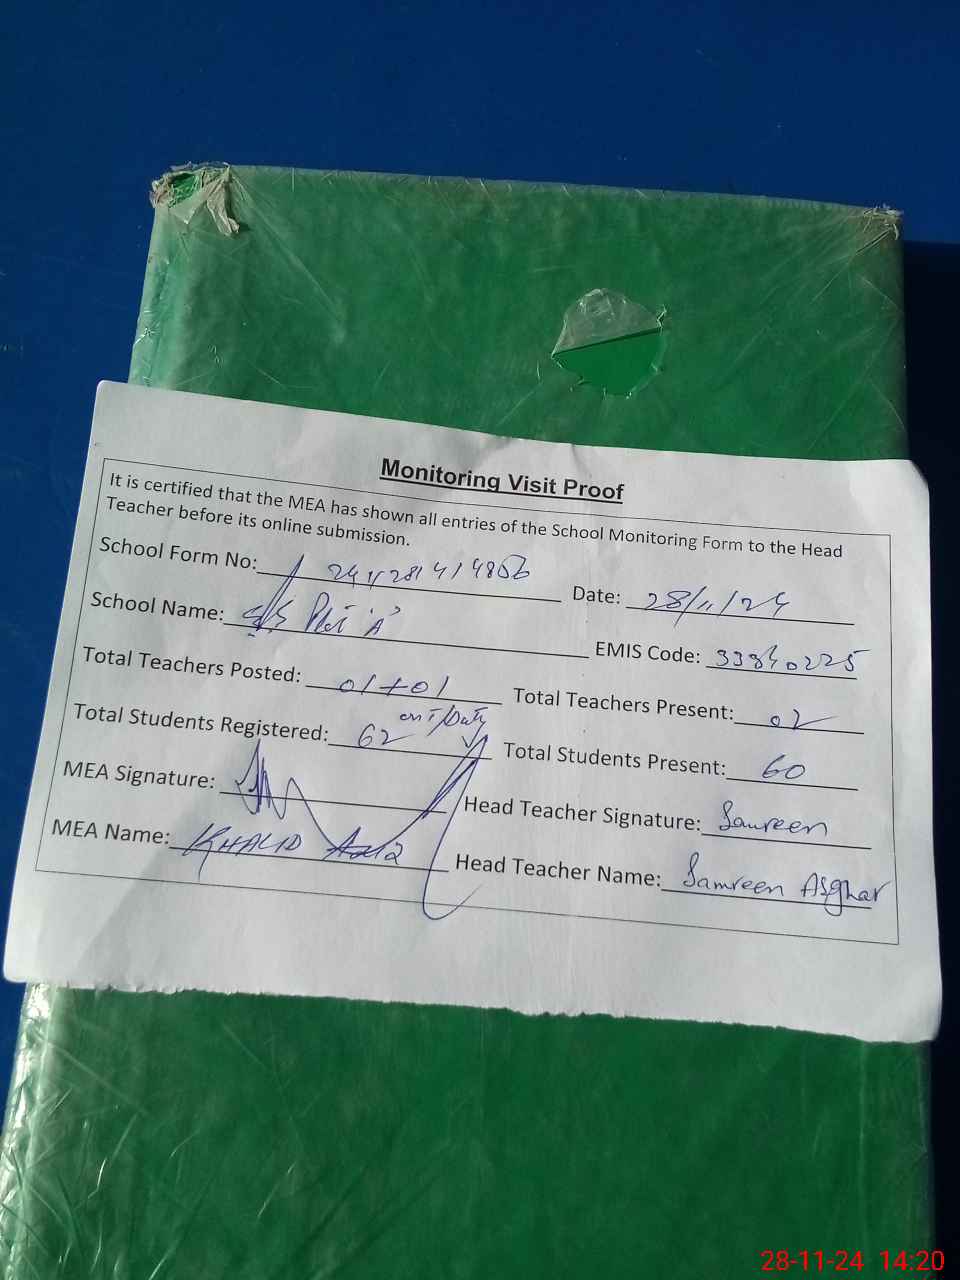 Monitoring Visit Proof
It is certified that the MEA has shown all entries of the School Monitoring Form to the Head
Teacher before its online submission.
School Form No: Date: 28/11/24
School Name: EMIS Code: 33340225
Total Teachers Posted: 01+01 Total Teachers Present: 02
Total Students Registered: 62 Total Students Present: 60
MEA Signature: Head Teacher Signature: Samreen
MEA Name: KHALID Aziz Head Teacher Name: Samreen Asghar
28-11-24 14:20